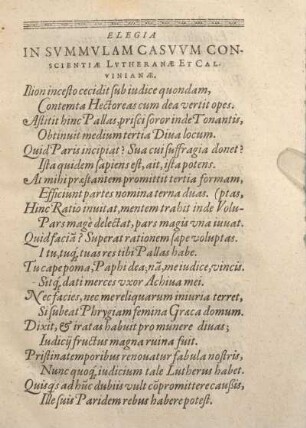 ELEGIA
IN SVMMVLAM CASVVM CON-
SCIENTIÆ LVTHERANÆ ET CAL-
VINIANÆ.
Ilion incesto cecidit sub iudice quondam,
Contemta Hectoreas cum dea vertit opes.
Astitit hinc Pallas, prisci soror inde Tonantis,
Obtinuit medium tertia Diua locum.
Quid Paris incipiat? Sua cui suffragia donet?
Ista quidem sapiens est, ait, ista potens.
At mihi præstantem promittit tertia formam,
Efficiunt partes nomina terna duas. (ptas,
Hinc Ratio inuitat, mentem trahit inde Volu-
Pars magè delectat, pars magis vna iuuat.
Quid faciã? Superat rationem sæpe voluptas.
I tu, tuq́, tuas res tibi Pallas habe.
Tu cape poma; Paphi dea, nã, me iudice, vincis.
Sitq́, dati merces vxor Achiua mei.
Nec facies, nec me reliquarum iniuria terret,
Si subeat Phrygiam femina Græca domum.
Dixit, & iratas habuit pro munere diuas;
Iudicij fructus magna ruina fuit.
Pristina temporibus renouatur fabula nostris,
Nunc quoq́, iudicium tale Lutherus habet.
Quisqs ad hũc dubiis vult cõpromittere caussis,
Ille suis Paridem rebus habere potest.